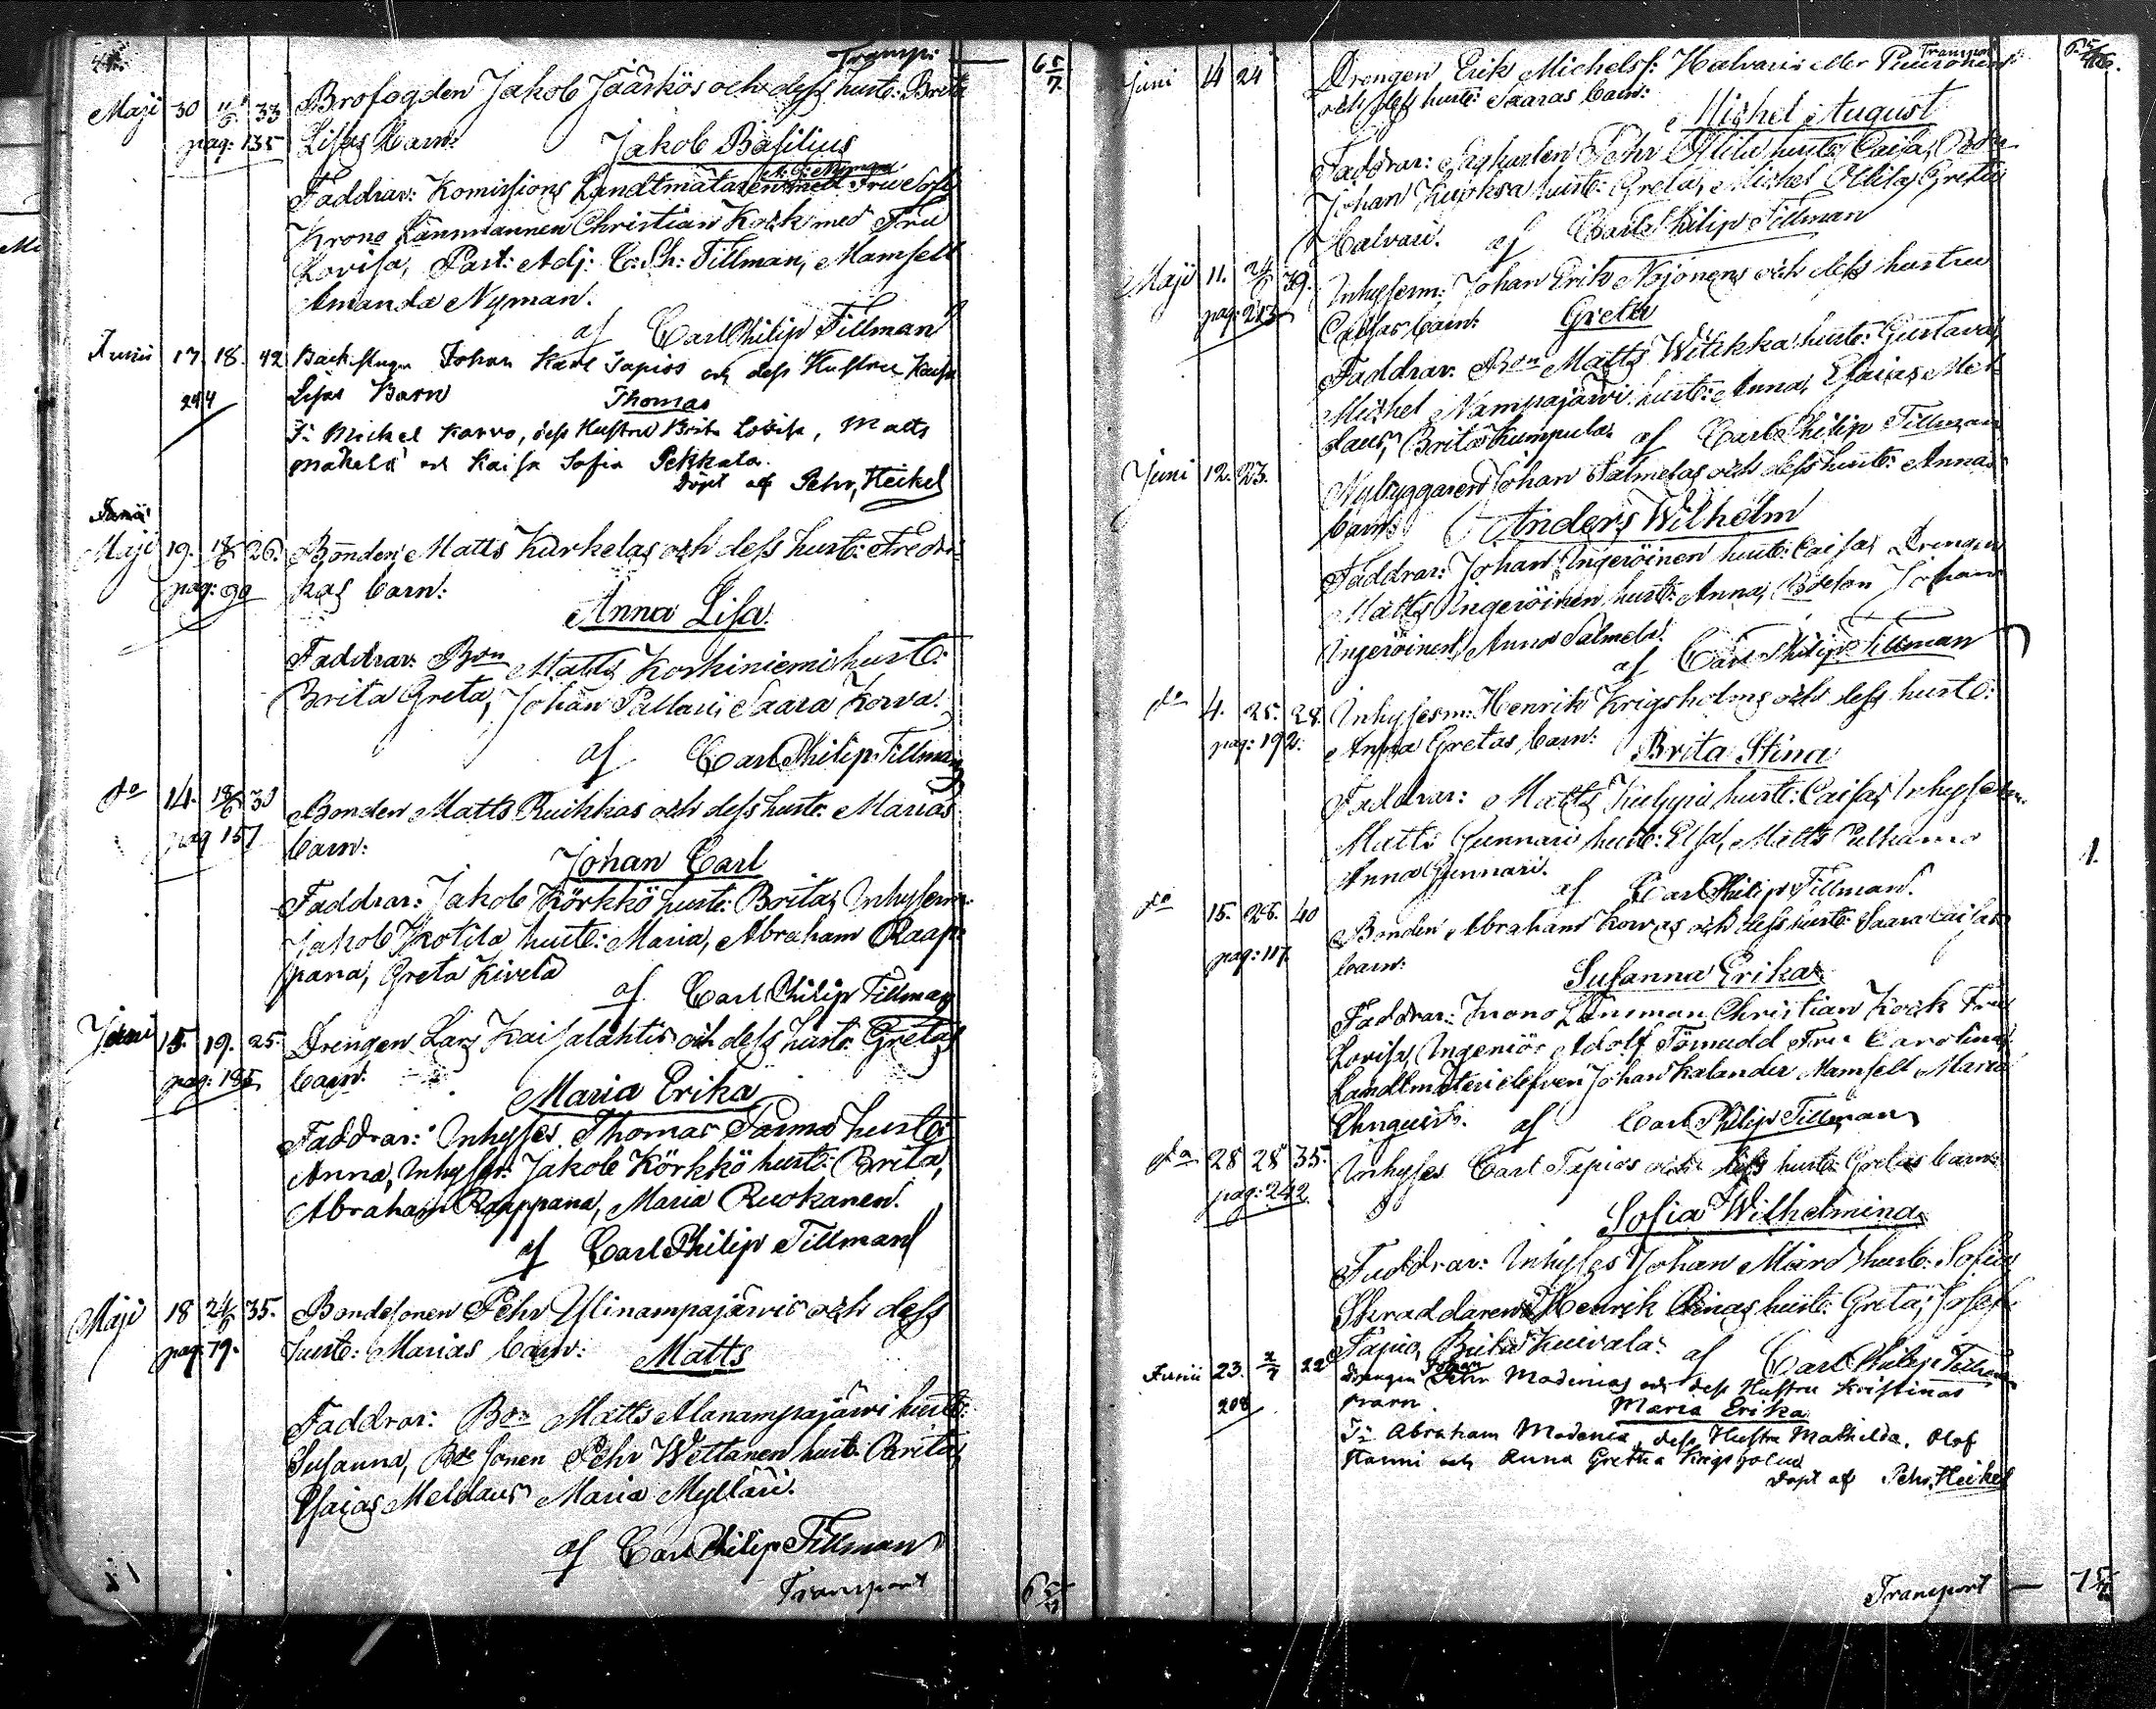 Transp: 6 5/7
Maji 30 11/6 33 Brofogden Jakob Jäärkös och dess hust: Brita
pag: 135 Lisas barn: Jakob Basilius
Faddrar: Komissions Landtmätaren med Fru Sofi
Krono Länsmannen Christian Kock med Fru
Lovisa, Past: Adj: C: Ph: Tillman, Mamsell
Amanda Nyman.
af Carl Philip Tillman
Junii 17. 18. 42 Backstugu Johan Karl Tapios och dess Hustru Kaisa
244 Lisas Barn Thomas
F: Mickel Karvo, dess Hustru Brita Lovisa, Matts
Mäkelä och Kaisa Sofia Pekkala.
Döpt af Pehr, Heikel
Maji 19. 18/6 26. Bonden Matts Kurkelas och dess hust: Fredri-
pag: 90 kas barn:
Anna Lisa.
Faddrar: Bon Matts Korkiniemi hust:
Brita Greta, Johan Pallari, Saara Korva.
af Carl Philip Tillman
do 14. 18/6 30 Bonden Matts Ruikkas och dess hust: Marias
pag 157 barn:
Johan Carl
Faddrar: Jakob Körkkö hust: Brita, Inhysesm:
Jakob Kotila hust: Maria, Abraham Raap-
pana, Greta Kivelä
af Carl Philip Tillman
Juni 15. 19. 25. Drengen Lars Kaisalahtis och dess hust: Gretas
pag: 185 barn:
Maria Erika
Faddrar: Inhyses Thomas Sarma hust:
Anna, Inhyses: Jakob Körkkö hust: Brita,
Abraham Raappana, Maria Ruokanen.
af Carl Philip Tillman
Maji 18 24/6 35. Bondesonen Pehr Ylinampajärvis och dess
pag: 79. hust: Marias barn: Matts
Faddrar: Bon Matts Alanampajärvi hust:
Susanna, Bde sonen Pehr Wettanen hust: Brita,
Esaias Meldaus Maria Myllari.
af Carl Philip Tillman
Transport 6 5/7
Transport
Juni 4 24 Drengen Erik Michelss: Halvaris eller
och dess hust: Saaras barn:
Michel August
Faddrar: Pehr Ollila hust: Caisa,
Johan hust: Greta, Michel Ollila, Greta
Halvari. af Carl Philip Tillman
Maji 11. 24/6 39. Inhysesm: Johan Erik och dess hustru
pag: 213 Caisas barn: Greta
Faddrar: Bon Matts Witikka hust: Gustava,
Michel Nampajärvi hust: Anna, Esaias Mel-
daus, Brita Kumpula. af Carl Philip Tillman
Juni 12. 23. Nybyggaren Johan Salmelas och dess hust: Annas
barn: Anders Wilhelm
Faddrar: Johan Ingeröinen hust: Caisa, Drengen
Matts Ingeröinen hust: Anna, Johan
Ingeröinen, Anna Salmela.
af Carl Philip Tillman
do 4. 25. 28. Inhysesm: Henrik Krigsholms och dess hust:
pag: 192. Anna Gretas barn: Brita Stina
Faddrar: Matts hust: Caisa, Inhysesm:
Matts Gunnari hust: Elsa, Matts Pulkamo
Anna Gunnari. 1.
af Carl Philip Tillman.
do 15. 26. 40 Bonden Abraham Korvas och dess hust: Saara Caisas
pag: 117. barn:
Susanna Erika
Faddrar: Krono Länsman Christian Kock Fru
Lovisa, Ingeniör Adolf Törnudd Fru Carolina,
Landtmäteri eleven Johan Kalander Mamsell Maria
af Carl Philip Tillman
do 28 28 35. Inhyses Carl Tapios och dess hust: Gretas barn:
pag: 242
Sofia Wilhelmina
Faddrar: Inhyses Johan hust: Sofia,
Skraddaren Henrik hust: Greta, Josef
Tapio, Brita Kuivala. af Carl Philip Tillman
Junii 23. 2/7 22 Drengen Johan Modenias och dess Hustru Kristinas
208 Barn. Maria Erika
F: Abraham Modenia, dess Hustru Mathilda, Olof
Hanni och Anna Gretha Krigsholm
Döpt af Pehr, Heikel
Transport 7 5/7